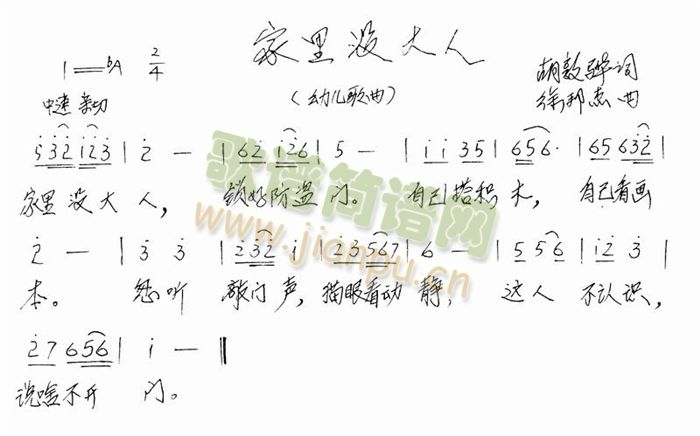 家里没大人
1=bA 2/4
(幼儿歌曲)
胡敦骅词
中速 亲切
徐邦杰曲
5 3 2 1 2 3 | 2 — | 6 2 1 2 6 | 5 — | 1 1 3 5 | 6 5 6· | 6 5 6 3 2 |
家里没大人, 锁好防盗门。 自己搭积木, 自己看画
2 — | 3 3 | 2 3 2 1 | 2 3 5 6 7 | 6 — | 5 5 6 | 1 2 3 |
本。 忽听 敲门声, 猫眼看动静, 这人 不认识,
2 7 6 5 6 | 1 — ‖
说啥不开门。
歌谱简谱网
www.jianpu.cn